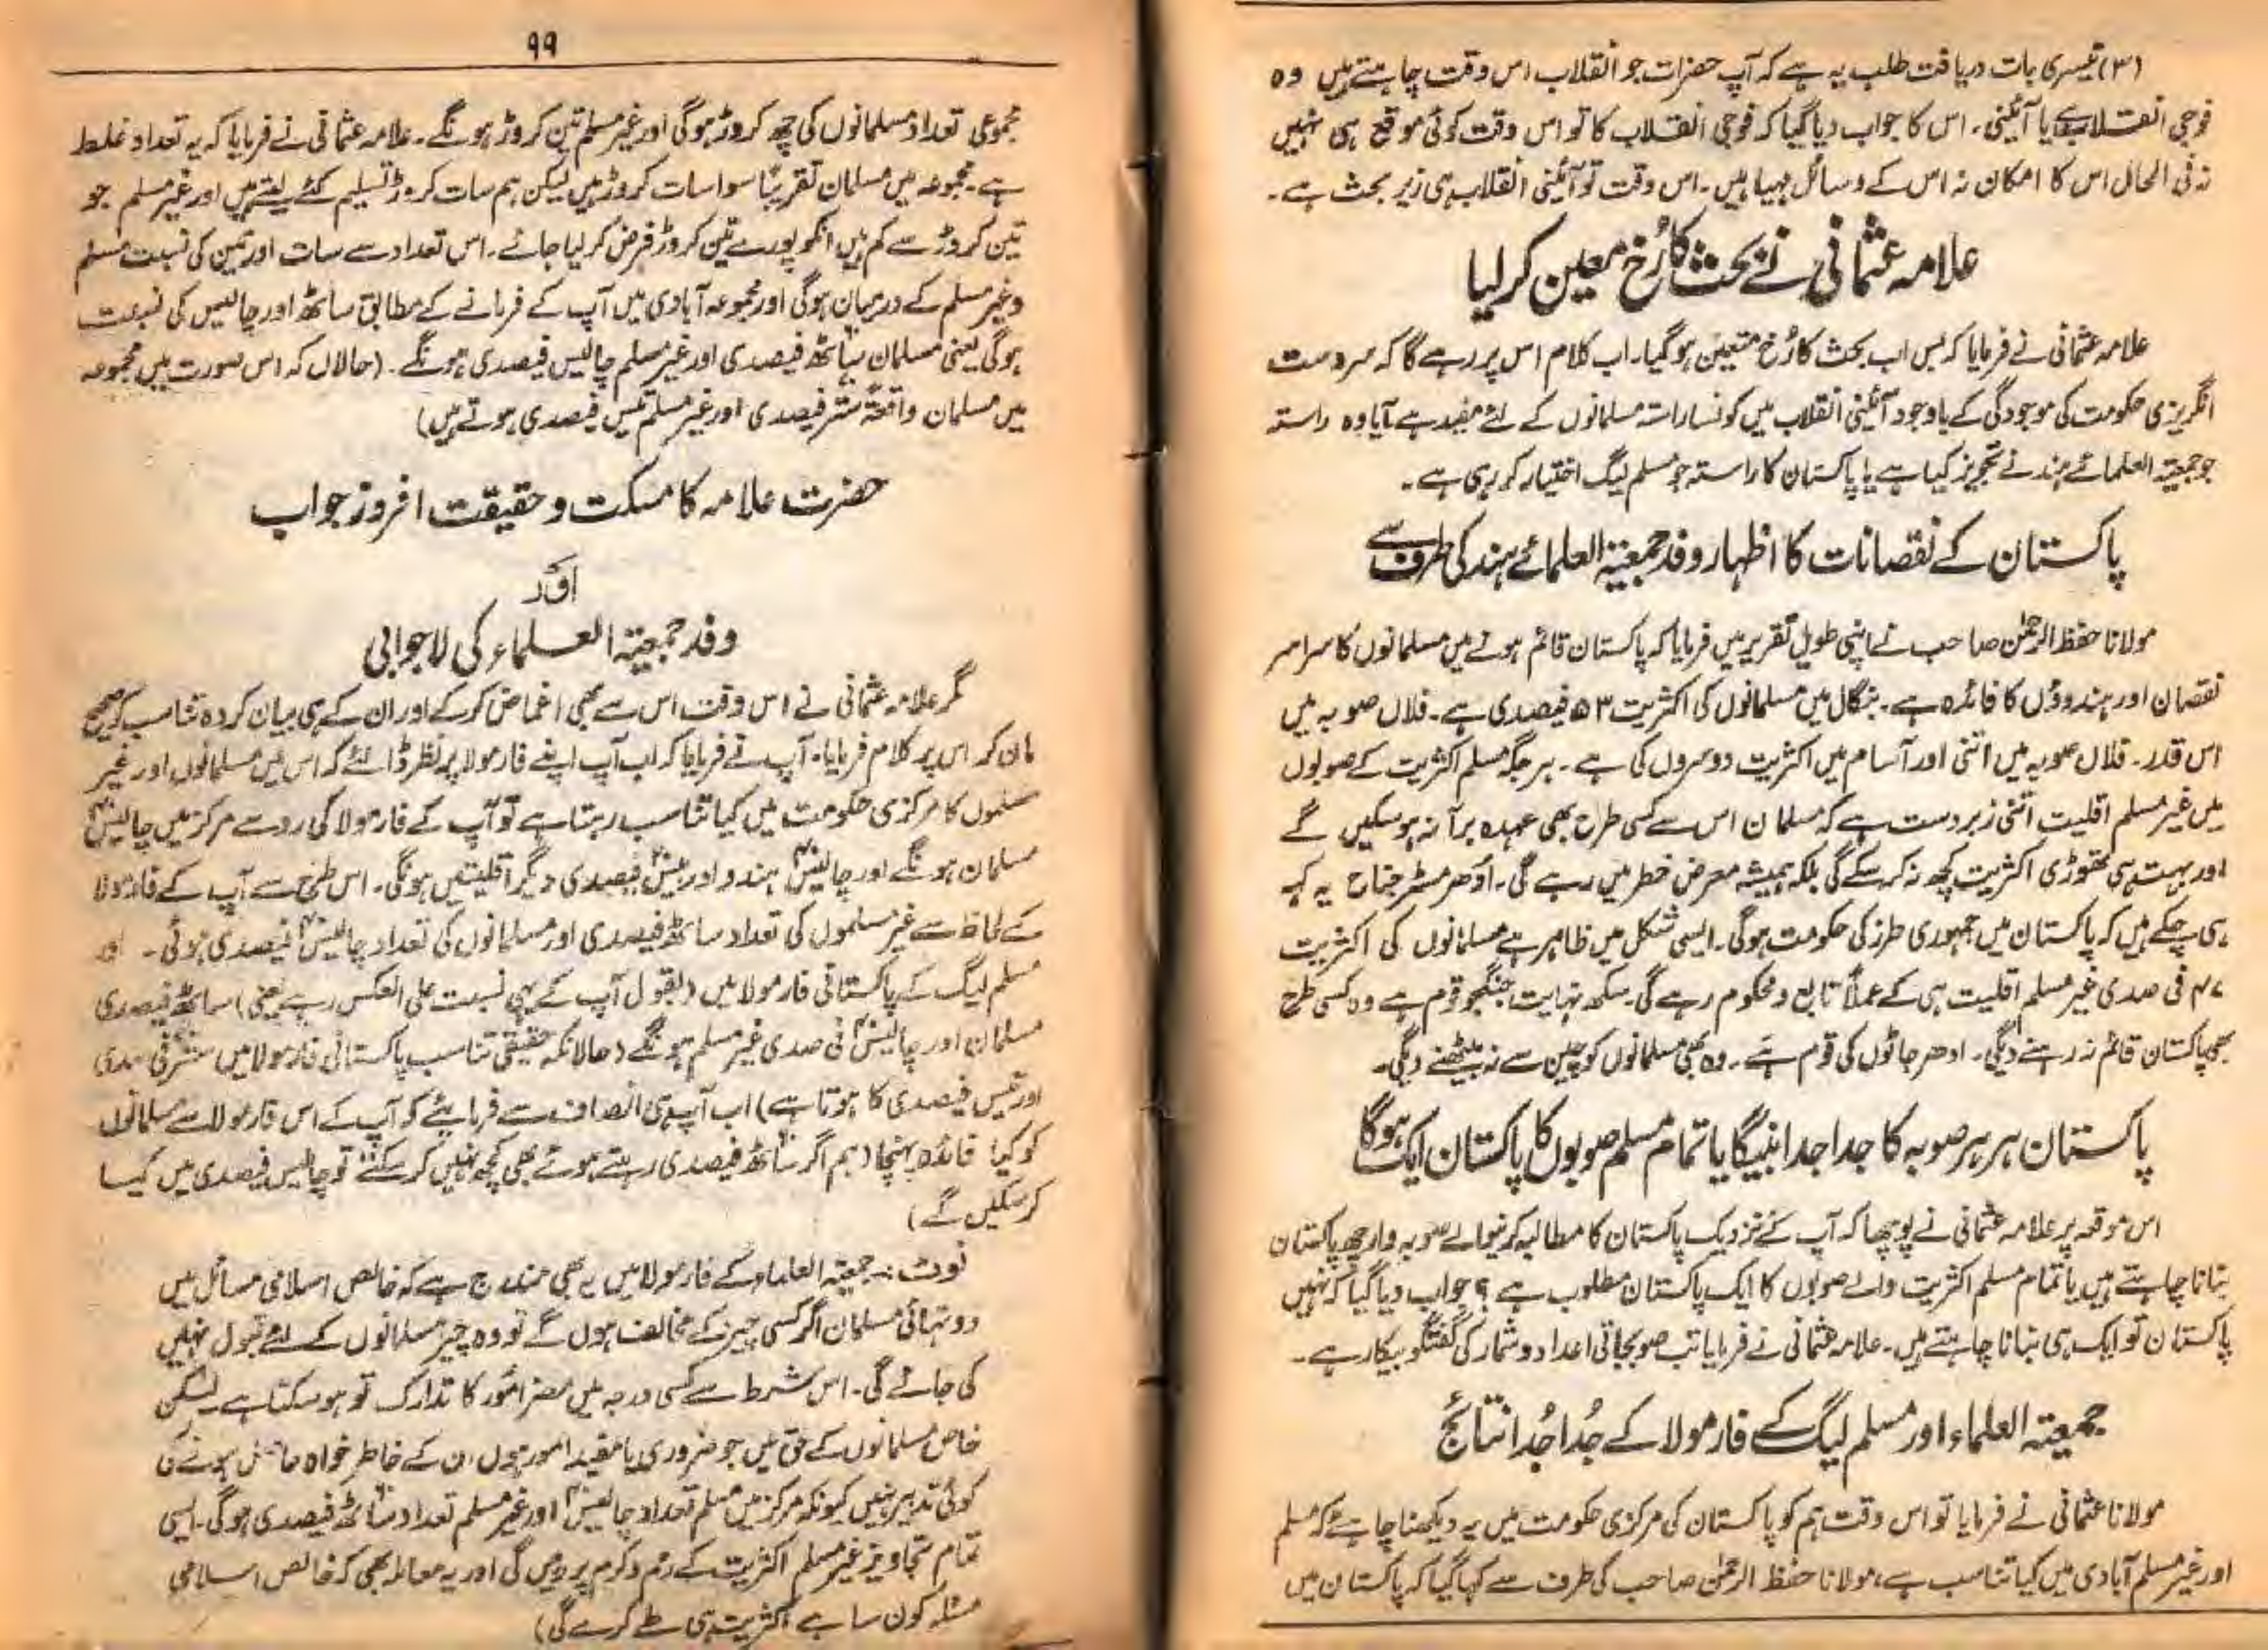 (۳) تیسری بات دریافت طلب یہ ہے کہ آپ حضرات جو انقلاب اس وقت چاہتے ہیں وہ
فوجی انقلاب ہے یا آئینی۔ اس کا جواب دیا گیا کہ فوجی انقلاب کا تو اس وقت کوئی موقع ہی نہیں
نہ فی الحال اس کا امکان نہ اس کے وسائل مہیا ہیں۔ اس وقت تو آئینی انقلاب ہی زیر بحث ہے۔
علامہ عثمانی نے بحث کا رُخ معین کر لیا
علامہ عثمانی نے فرمایا کہ بس اب بحث کا رُخ متعین ہو گیا۔ اب کلام اس پر رہے گا کہ سردست
انگریزی حکومت کی موجودگی کے باوجود آئینی انقلاب میں کونسا راستہ مسلمانوں کے لئے مفید ہے آیا وہ راستہ
جو جمعیۃ العلمائے ہند نے تجویز کیا ہے یا پاکستان کا راستہ جو مسلم لیگ اختیار کر رہی ہے۔
پاکستان کے نقصانات کا اظہار وفد جمعیۃ العلمائے ہند کی طرف سے
مولانا حفظ الرحمٰن صاحب نے اپنی طویل تقریر میں فرمایا کہ پاکستان قائم ہونے میں مسلمانوں کا سراسر
نقصان اور ہندوؤں کا فائدہ ہے۔ بنگال میں مسلمانوں کی اکثریت ۵۳ فیصدی ہے۔ فلاں صوبہ میں
اس قدر۔ فلاں صوبہ میں اتنی اور آسام میں اکثریت دوسروں کی ہے۔ ہر جگہ مسلم اکثریت کے صوبوں
میں غیر مسلم اقلیت اتنی زبردست ہے کہ مسلمان اس سے کسی طرح بھی عہدہ برآ نہ ہو سکیں گے
اور بہت ہی تھوڑی اکثریت کچھ نہ کر سکے گی بلکہ ہمیشہ معرض خطر میں رہے گی۔ ادھر مسٹر جناح یہ کہہ
ہی چکے ہیں کہ پاکستان میں جمہوری طرز کی حکومت ہوگی۔ ایسی شکل میں ظاہر ہے مسلمانوں کی اکثریت
۴۷ فی صدی غیر مسلم اقلیت ہی کے عملاً تابع و محکوم رہے گی۔ سکھ نہایت جنگجو قوم ہے وہ کسی طرح
بھی پاکستان قائم نہ رہنے دیگی۔ ادھر جاٹوں کی قوم ہے۔ وہ بھی مسلمانوں کو چین سے نہ بیٹھنے دیگی۔
پاکستان ہر ہر صوبہ کا جدا جدا بنیگا یا تمام مسلم صوبوں کا پاکستان ایک ہوگا
اس موقعہ پر علامہ عثمانی نے پوچھا کہ آپ کے نزدیک پاکستان کا مطالبہ کرنیوالے صوبہ وار چھ پاکستان
بنانا چاہتے ہیں یا تمام مسلم اکثریت والے صوبوں کا ایک پاکستان مطلوب ہے؟ جواب دیا گیا کہ نہیں
پاکستان تو ایک ہی بنانا چاہتے ہیں۔ علامہ عثمانی نے فرمایا تب صوبجاتی اعداد و شمار کی گفتگو بیکار ہے۔
جمعیۃ العلماء اور مسلم لیگ کے فارمولا کے جُدا جُدا نتائج
مولانا عثمانی نے فرمایا تو اس وقت ہم کو پاکستان کی مرکزی حکومت میں یہ دیکھنا چاہئے کہ مسلم
اور غیر مسلم آبادی میں کیا تناسب ہے، مولانا حفظ الرحمٰن صاحب کی طرف سے کہا گیا کہ پاکستان میں
۹۹
مجموعی تعداد مسلمانوں کی چھ کروڑ ہوگی اور غیر مسلم تین کروڑ ہونگے۔ علامہ عثمانی نے فرمایا کہ یہ تعداد غلط
ہے۔ مجموعہ میں مسلمان تقریباً سوا سات کروڑ ہیں لیکن ہم سات کروڑ تسلیم کئے لیتے ہیں اور غیر مسلم جو
تین کروڑ سے کم ہیں انکو پورے تین کروڑ فرض کر لیا جائے۔ اس تعداد سے سات اور تین کی نسبت مسلم
و غیر مسلم کے درمیان ہوگی اور مجموعہ آبادی میں آپ کے فرمانے کے مطابق ساٹھ اور چالیس کی نسبت
ہوگی یعنی مسلمان ساٹھ فیصدی اور غیر مسلم چالیس فیصدی ہونگے۔ (حالاں کہ اس صورت میں مجموعہ
میں مسلمان واقعۃً ستر فیصدی اور غیر مسلم تیس فیصدی ہوتے ہیں)
حضرت علامہ کا مسکت و حقیقت افروز جواب
اور
وفد جمعیۃ العلماء کی لاجوابی
مگر علامہ عثمانی نے اس وقت اس سے بھی اغماض کر کے اور ان کے ہی بیان کردہ تناسب کو صحیح
مان کر اس پر کلام فرمایا۔ آپ نے فرمایا کہ اب آپ اپنے فارمولا پر نظر ڈالئے کہ اس میں مسلمانوں اور غیر
مسلموں کا مرکزی حکومت میں کیا تناسب رہتا ہے تو آپ کے فارمولا کی رو سے مرکز میں چالیس
مسلمان ہونگے اور چالیس ہندو اور بیس فیصدی دیگر اقلیتیں ہونگی۔ اس طرح سے آپ کے فارمولا
کے لحاظ سے غیر مسلموں کی تعداد ساٹھ فیصدی اور مسلمانوں کی تعداد چالیس فیصدی ہوئی۔ اور
مسلم لیگ کے پاکستانی فارمولا میں (بقول آپ کے یہی نسبت علی العکس رہے یعنی) ساٹھ فیصدی
مسلمان اور چالیس فی صدی غیر مسلم ہونگے (حالانکہ حقیقی تناسب پاکستانی فارمولا میں ستر فی صدی
اور تیس فیصدی کا ہوتا ہے) اب آپ ہی انصاف سے فرمایئے کہ آپ کے اس فارمولا سے مسلمانوں
کو کیا فائدہ پہنچا (ہم اگر ساٹھ فیصدی رہتے ہوئے بھی کچھ نہیں کر سکتے تو چالیس فیصدی میں کیسا
کر سکیں گے)
نوٹ:۔ جمعیۃ العلماء کے فارمولا میں یہ بھی مندرج ہے کہ خالص اسلامی مسائل میں
دو تہائی مسلمان اگر کسی چیز کے مخالف ہوں گے تو وہ چیز مسلمانوں کے لئے قبول نہیں
کی جائے گی۔ اس شرط سے کسی درجہ میں مضر امور کا تدارک تو ہو سکتا ہے لیکن
خاص مسلمانوں کے حق میں جو ضروری یا مفید امور ہوں ان کے خاطر خواہ حاصل ہونے کی
کوئی تدبیر نہیں کیونکہ مرکز میں مسلم تعداد چالیس اور غیر مسلم تعداد ساٹھ فیصدی ہوگی۔ ایسی
تمام تجاویز غیر مسلم اکثریت کے رحم و کرم پر رہیں گی اور یہ معاملہ بھی کہ خالص اسلامی
مسئلہ کون سا ہے اکثریت ہی طے کرے گی)